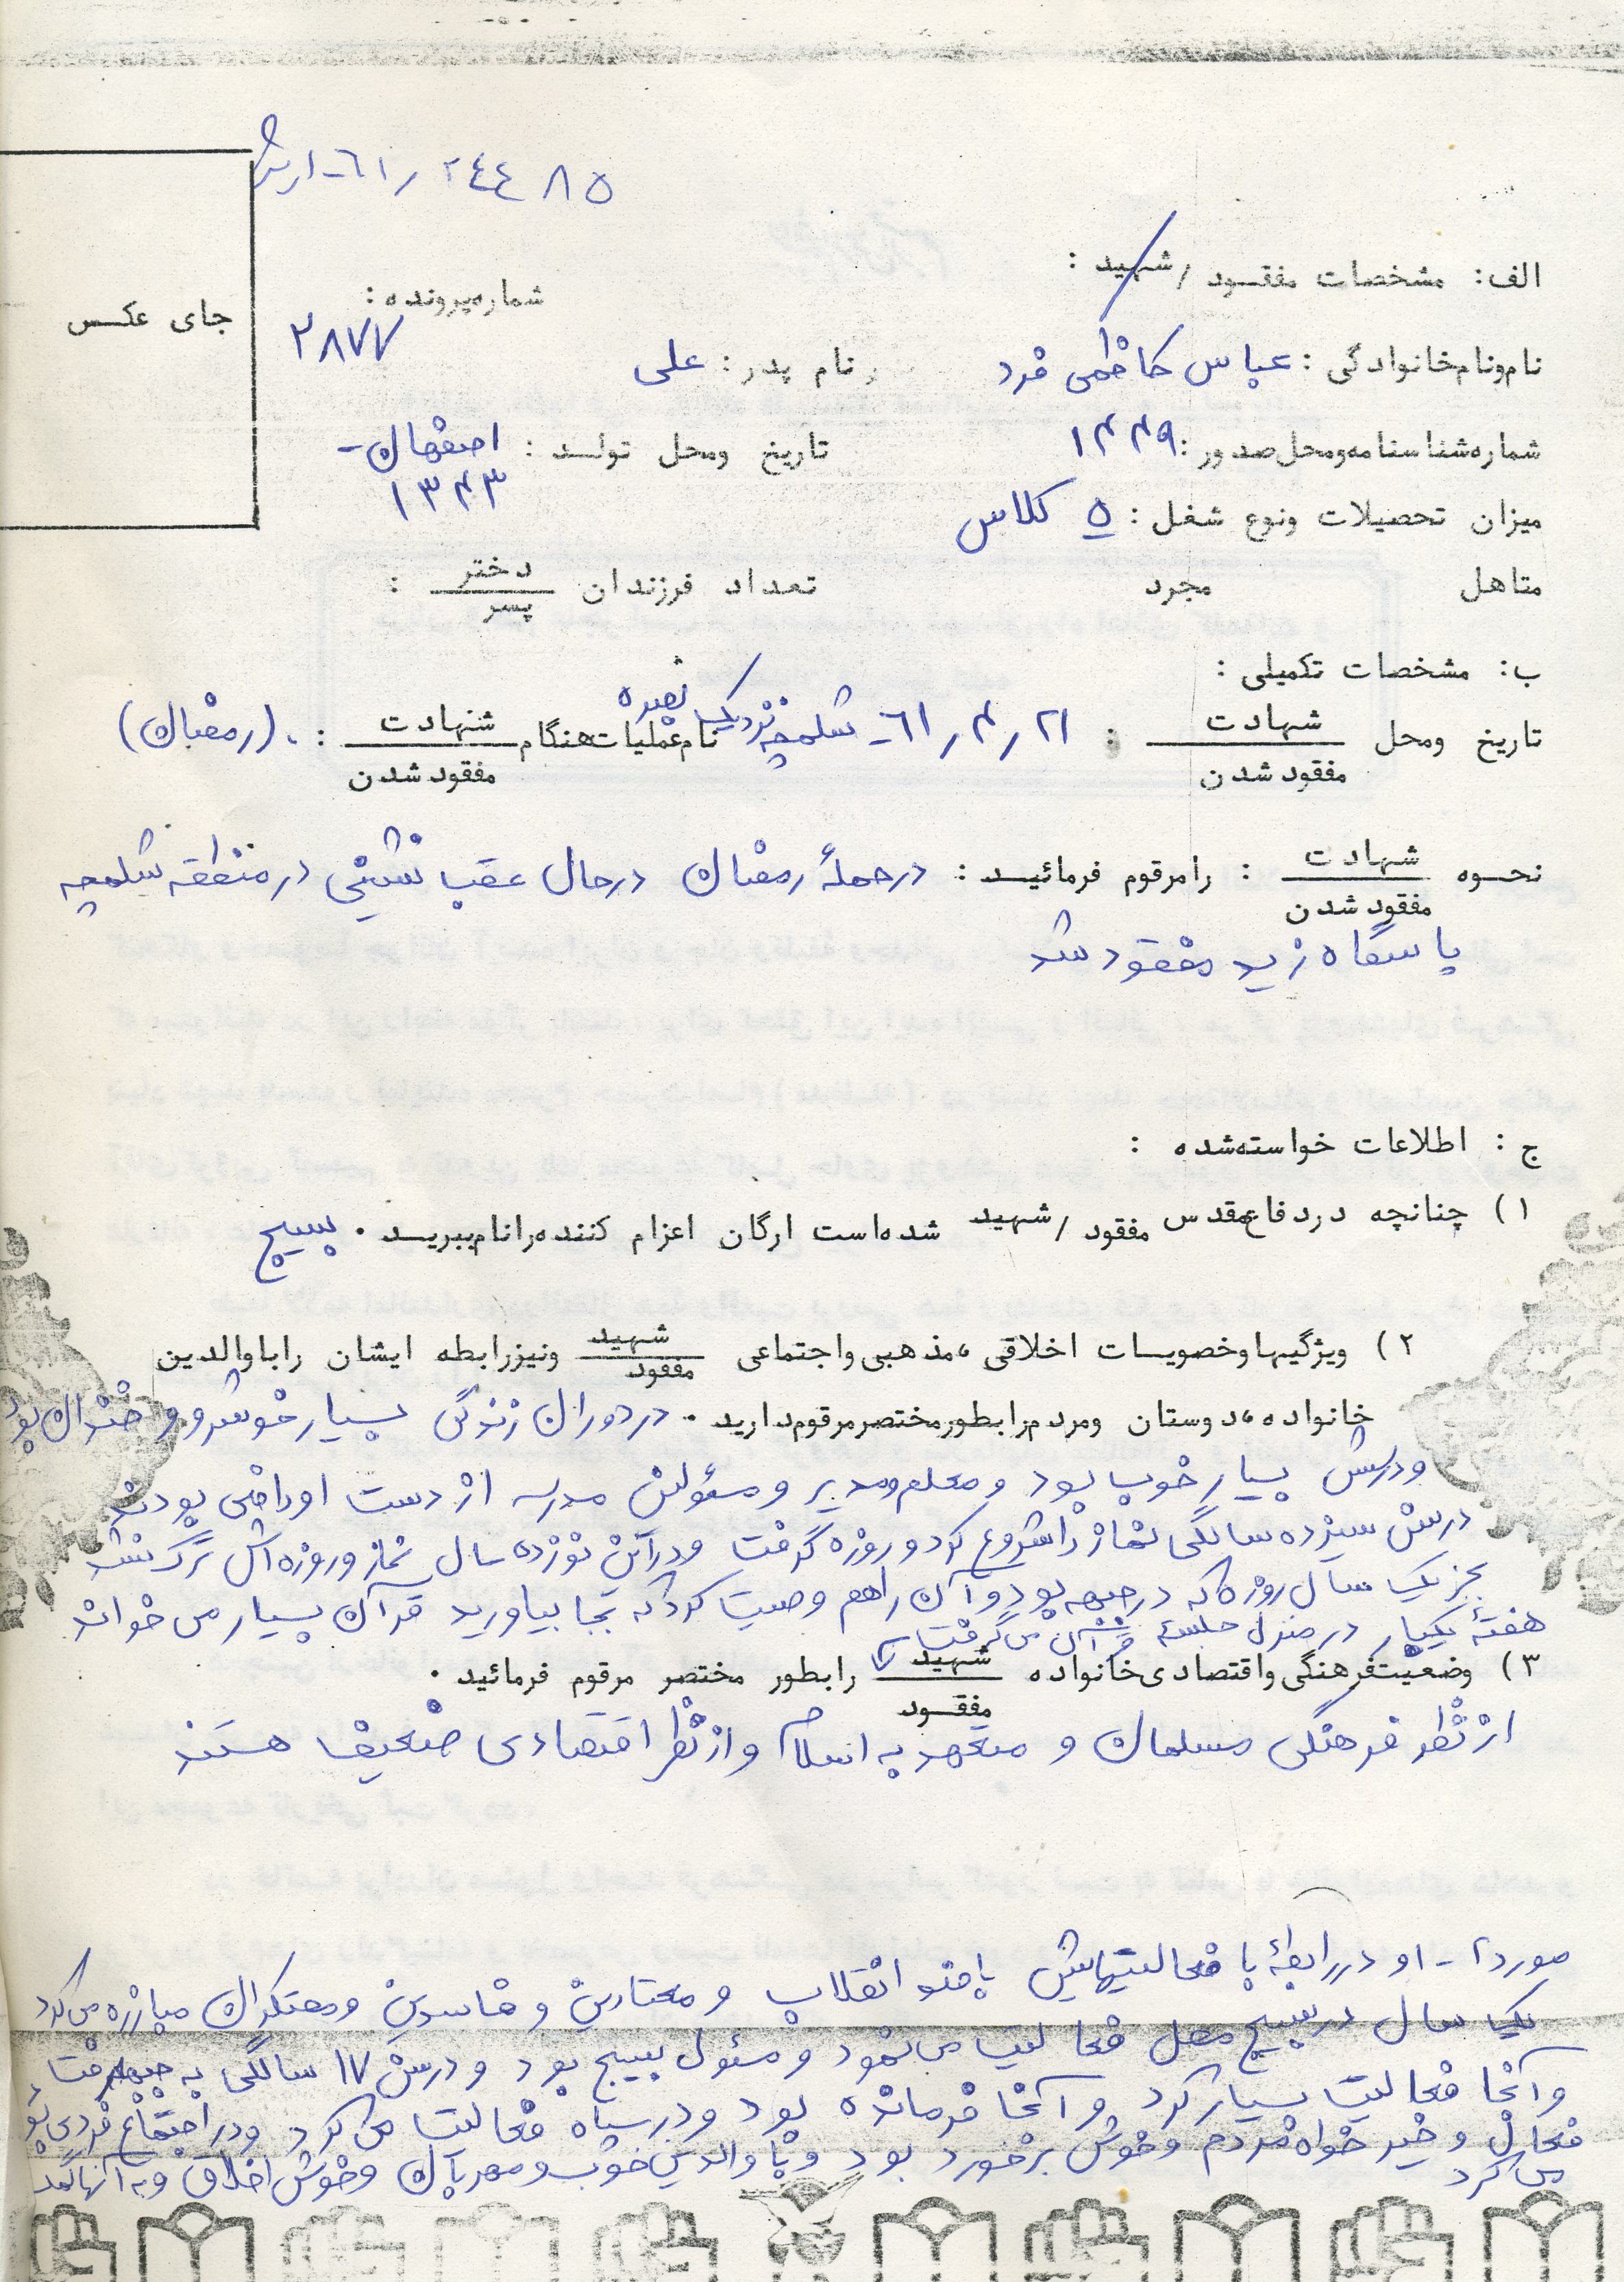 ۶۱-ار‌ش/۲۴۴۸۵
الف: مشخصات مفقود/شهید:
شماره پرونده: ۲۸۷۷
جای عکس
نام و نام خانوادگی: عباس کاظمی فرد نام پدر: علی
شماره شناسنامه و محل صدور: ۱۴۴۹ تاریخ و محل تولد: اصفهان - ۱۳۴۳
میزان تحصیلات و نوع شغل: ۵ کلاس
متاهل مجرد تعداد فرزندان دختر / پسر:
ب: مشخصات تکمیلی:
تاریخ و محل شهادت / مفقود شدن: ۲۱/۴/۶۱ - شلمچه نزدیک بصره نام عملیات هنگام شهادت / مفقود شدن: (رمضان)
نحوه شهادت / مفقود شدن: را مرقوم فرمائید: در حملهٔ رمضان در حال عقب نشینی در منطقه شلمچه
پاسگاه زید مفقود شد
ج: اطلاعات خواسته شده:
۱) چنانچه در دفاع مقدس مفقود/شهید شده است ارگان اعزام کننده را نام ببرید. بسیج
۲) ویژگیها و خصویسات اخلاقی، مذهبی و اجتماعی شهید / مفقود و نیز رابطه ایشان را با والدین
خانواده، دوستان و مردم را بطور مختصر مرقوم دارید. در دوران زندگی بسیار خوشرو و خندان بود
ودرسش بسیار خوب بود و معلم ومدیر و مسئولین مدرسه از دست او راضی بودند
درسن سیزده سالگی نماز را شروع کرد و روزه گرفت و در این نوزده سال نماز و روزه اش ترک نشد
بجز یک سال روزه که در جبهه بود و آن راهم وصیت کرد که بجا بیاورید قرآن بسیار می خواند
هفتهٔ یکبار در منزل جلسهٔ قرآن می گرفت
۳) وضعیت فرهنگی و اقتصادی خانواده شهید / مفقود را بطور مختصر مرقوم فرمائید.
از نظر فرهنگی مسلمان و متعهد به اسلام و از نظر اقتصادی ضعیف هستند
مورد ۲ - او در رابطهٔ با فعالیتهایش با ضد انقلاب و معتادین و فاسدین و محتکران مبارزه می کرد
یک سال در بسیج محل فعالیت می نمود و مسئول بسیج بود و درسن ۱۷ سالگی به جبهه رفت
و آنجا فعالیت بسیار کرد و آنجا فرمانده بود و در سپاه فعالیت می کرد و در اجتماع فردی
فعال و خیر خواه مردم و خوش برخورد بود و با والدین خوب و مهربان و خوش اخلاق و به آنها کمک
می کرد